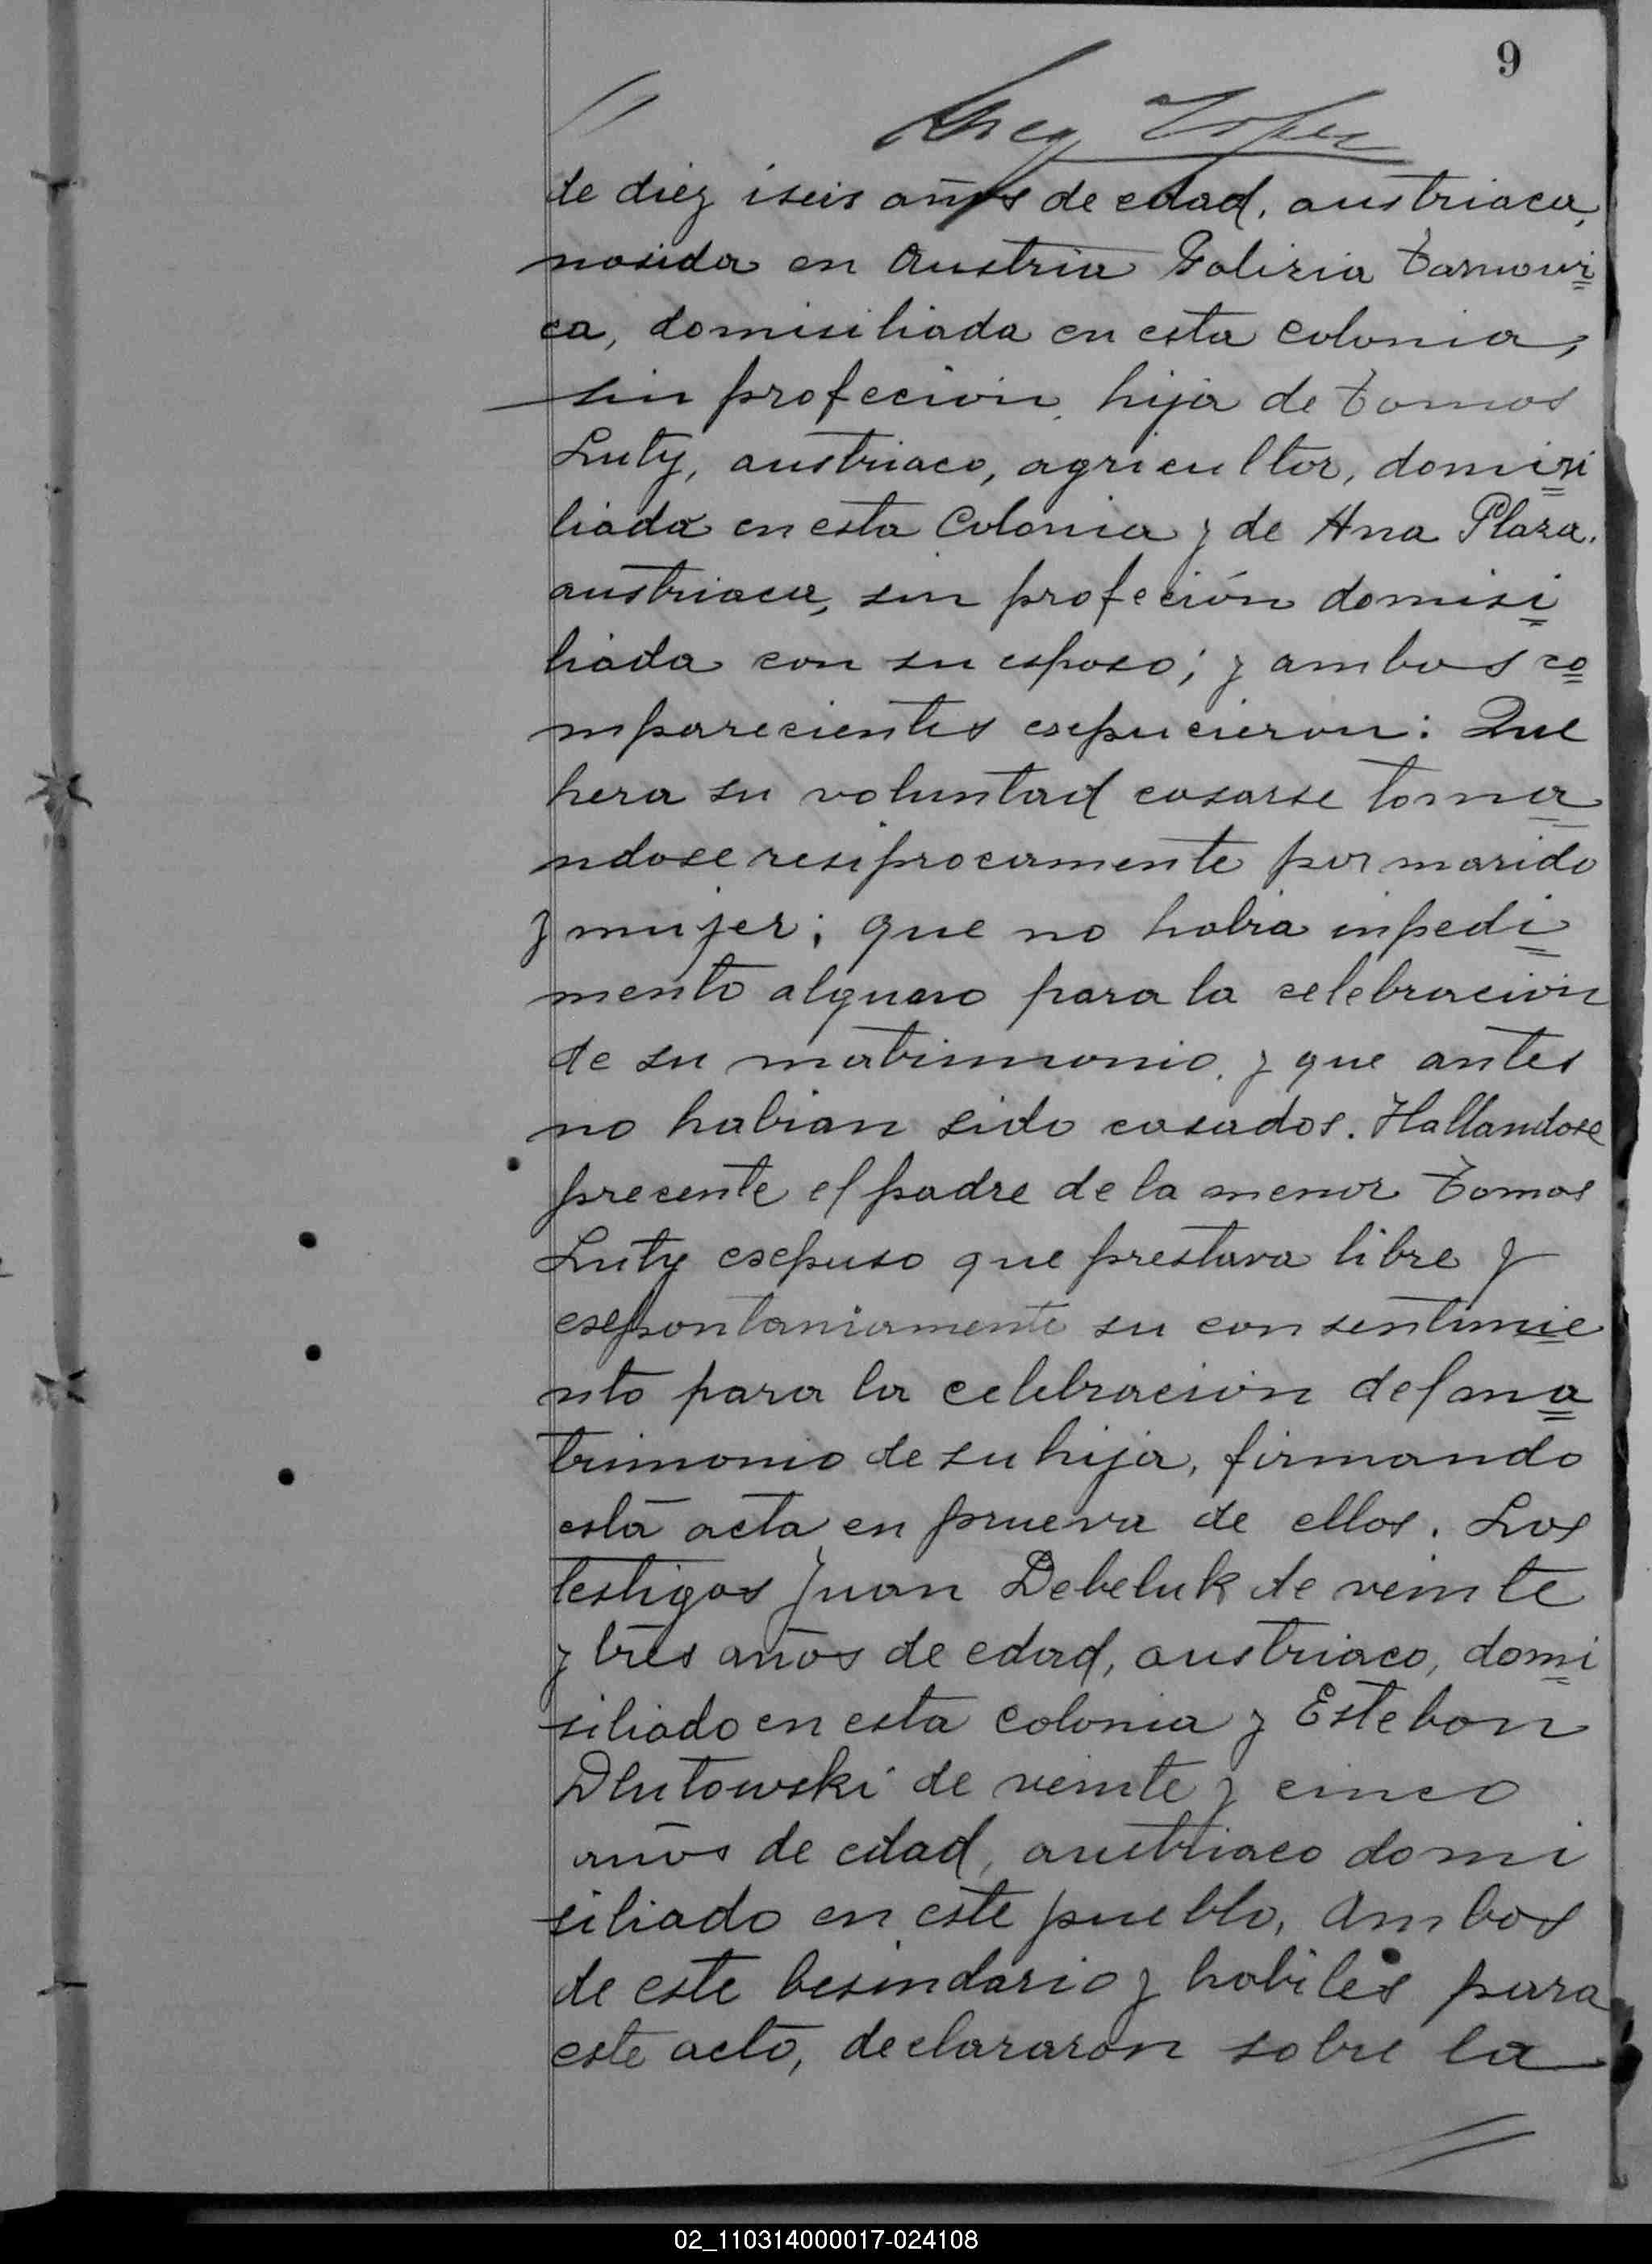 9
de diez iseis años de edad, austriaca,
nasida en Austria Galizia Tarnowi
ca, domisiliada en esta colonia,
sin profecion, hija de Tomas
Luty, austriaco, agricultor, domisi
liada en esta Colonia y de Ana Plaza.
austriaca, sin profeción domisi
liada con su esposo; y ambos co
mparecientes esepucieron: Que
hera su voluntad casarse toma
ndose resiprocamente por marido
y mujer; que no habia inpedi
mento alguno para la celebracion
de su matrimonio, y que antes
no habian sido casados. Hallandose
presente el padre de la menor Tomas
Luty esepuso que prestava libre y
esepontaniamente su consentimie
nto para la celebracion del ma
trimonio de su hija, firmando
esta acta en prueva de ellos. Los
testigos Juan Debeluk de veinte
y tres años de edad, austriaco, domi
siliado en esta colonia y Esteban
Dlutowski de veinte y cinco
años de edad, austriaco domi
siliado en este pueblo, Ambos
de este besindario y habiles para
este acto, declararon sobre la
02_110314000017-024108